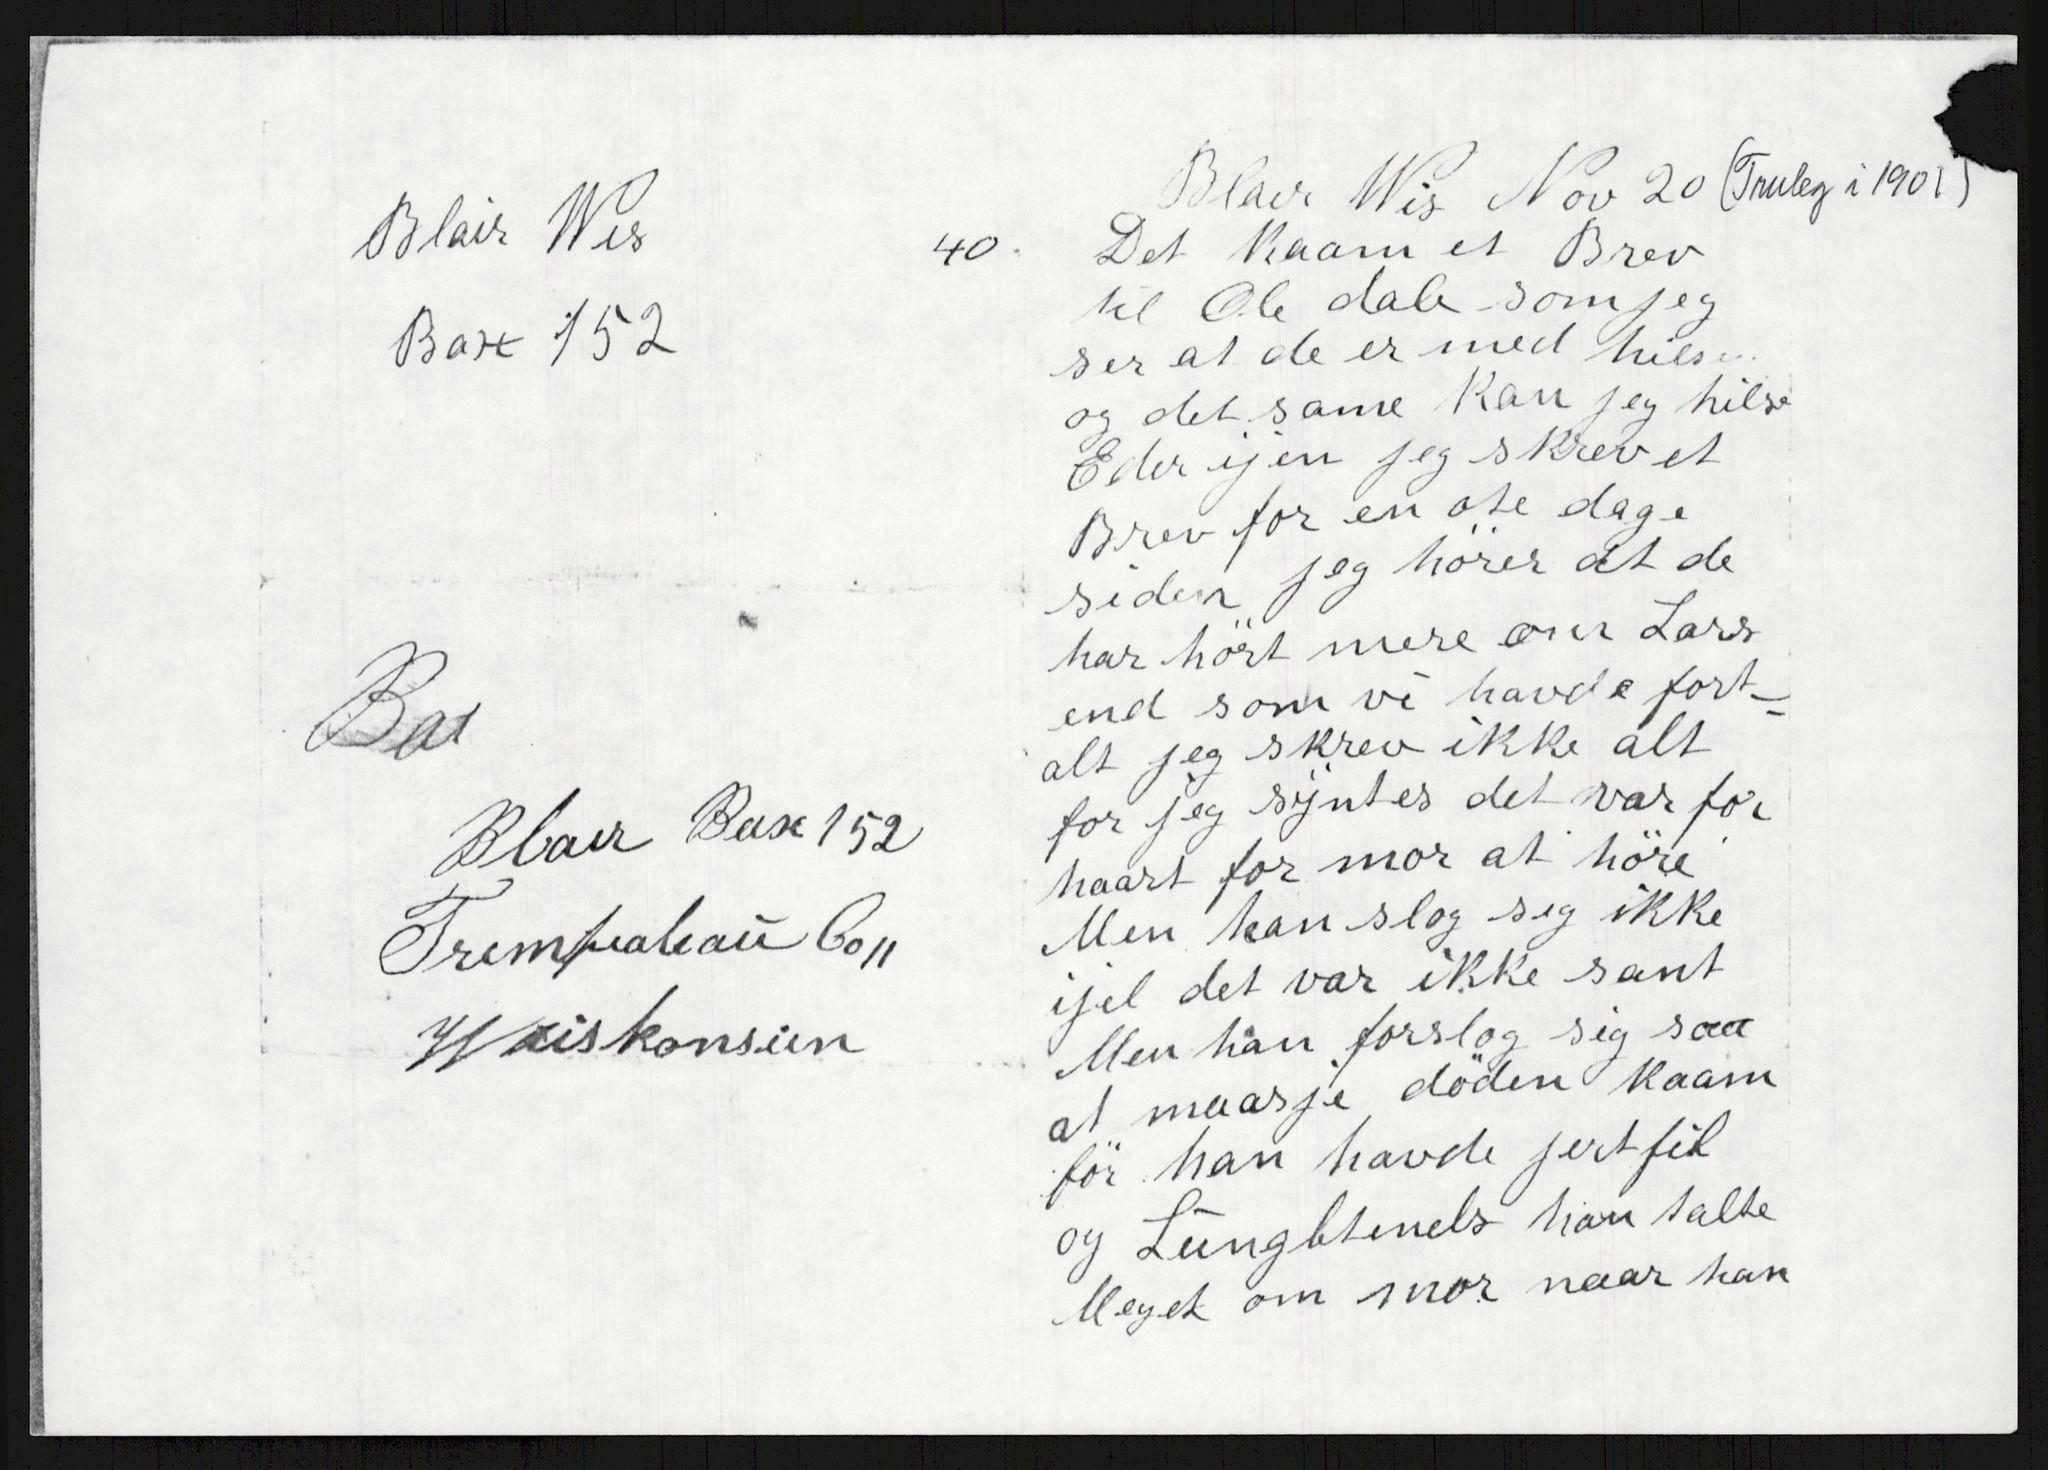 Blair Wis
Box 152
Box
Blair Box 152
Trempealeaŭ Co,,
Wiskonsien
40.
Blair Wis Nov 20 (Truleg i 1901)
Det kaam et Brev
til Ole dale som jeg
ser at de er med hils
og det same kan jeg hilse
Eder ijen jeg skrev et
Brev for en ote dage
siden jeg hörer at de
har hört mere om Lars
end som vi havde fort-
alt jeg skrev ikke alt
for jeg syntes det var for
haart for mor at höre
Men han slog seg ikke
ijel det var ikke sant
Men han forslog sig saa
at maasje döden kaam
för han havde jertfeil
og Lŭngbtenels han talte
Meget om mor naar han